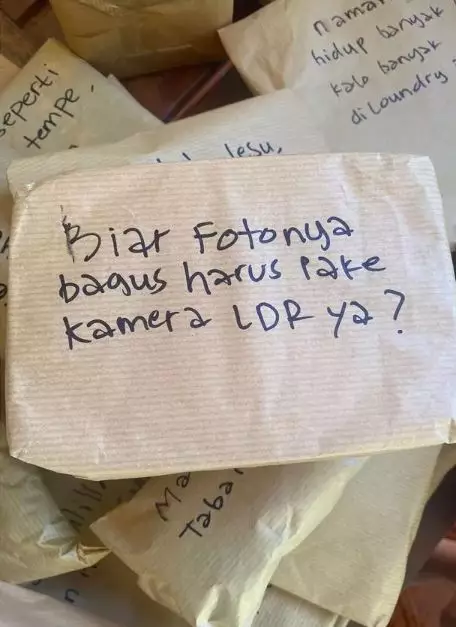 Biar Fotonya
bagus harus Pake
kamera LDR ya?
seperti
tempe,
lesu,
hidup banyak
kalo banyak
dilaundry
Ma
Taba